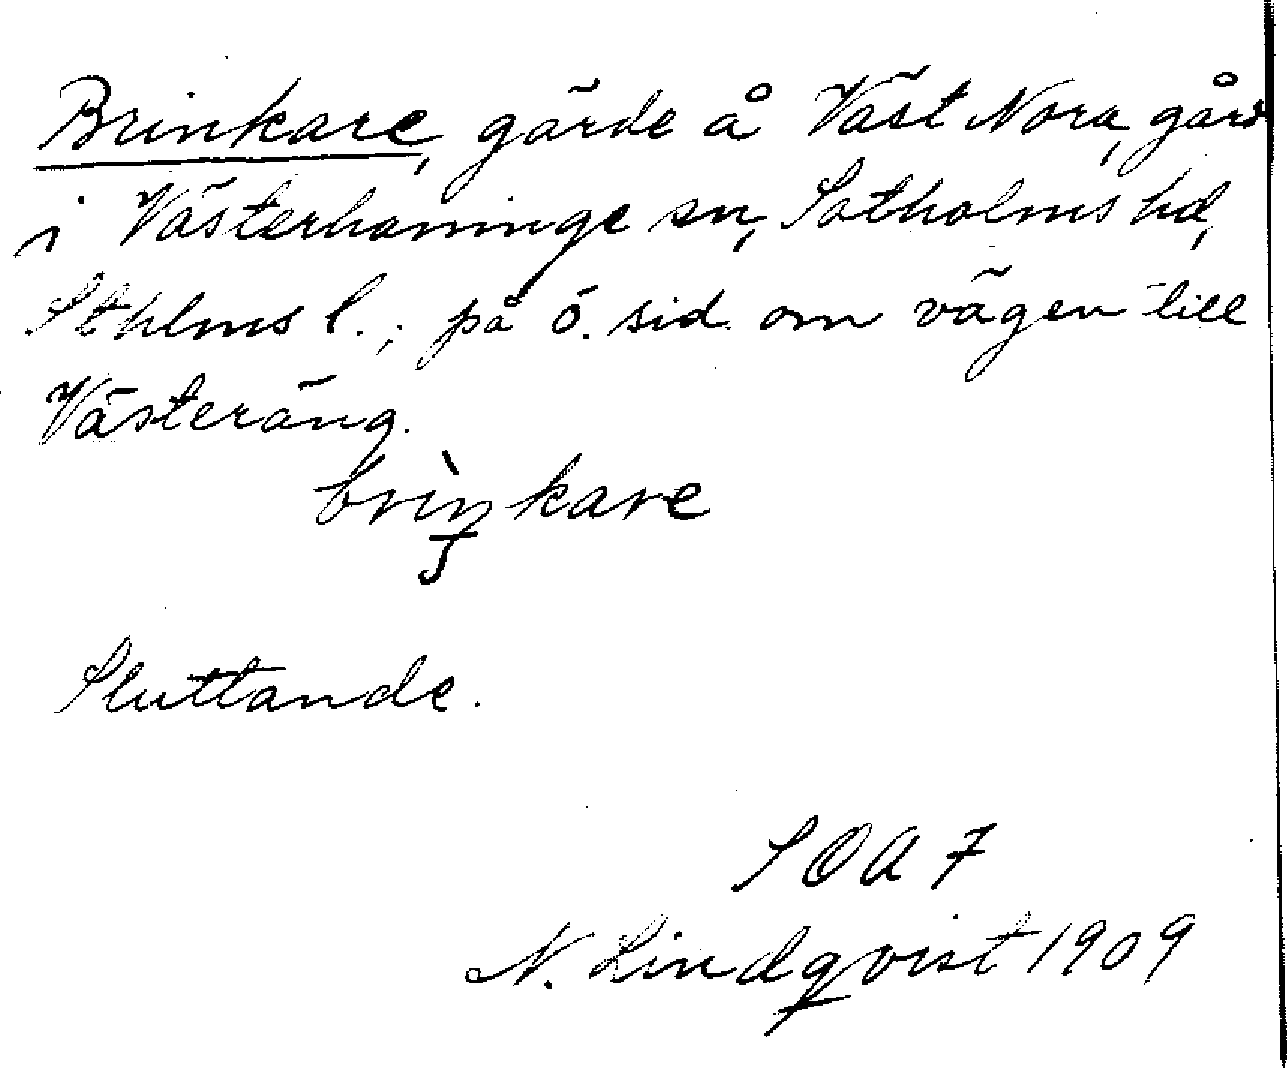 Brinkare, gärde å Väst Nora, gård
i Västerhaninge sn, Sotholms hd,
Sthlms l.; på ö. sid. om vägen till
Västeräng.
brìnkare
Sluttande.
SOA 7
N. Lindqvist 1909